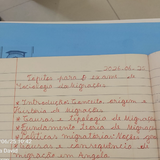 Tópicos para o exame de
Sociologia da Migração
• Introdução: Conceito, origem e
história da migração
• Causas e tipologia de Migração
• Fundamento Teoria de Migração
• Políticas migratórias: Noções
Causas e consequência de
migração em Angola